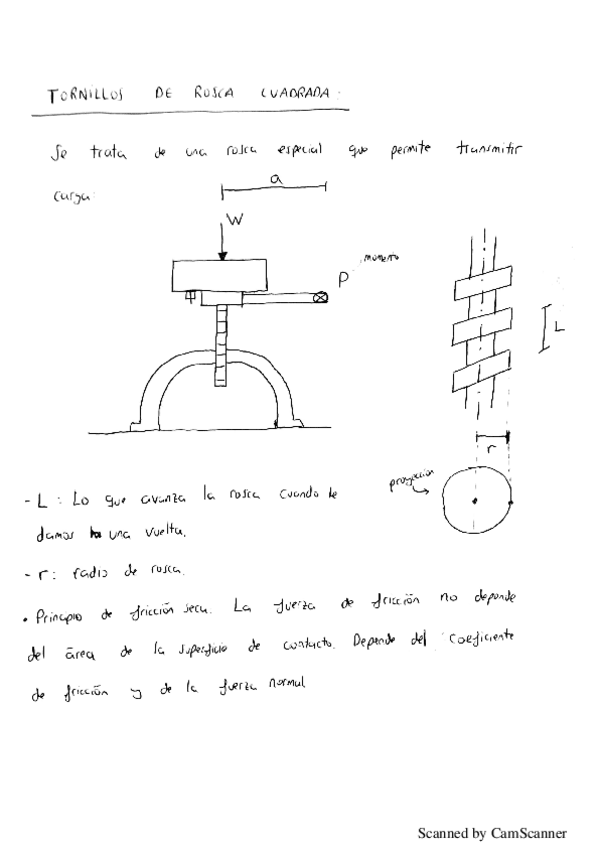 TORNILLOS DE ROSCA CUADRADA.
Se trata de una rosca especial que permite transmitir
carga.
a
W
P
momento
L
r
proyección
- L : Lo que avanza la rosca cuando le
damos una vuelta.
- r : radio de rosca.
• Principio de fricción seca. La fuerza de fricción no depende
del área de la superficie de contacto. Depende del coeficiente
de fricción y de la fuerza normal
Scanned by CamScanner